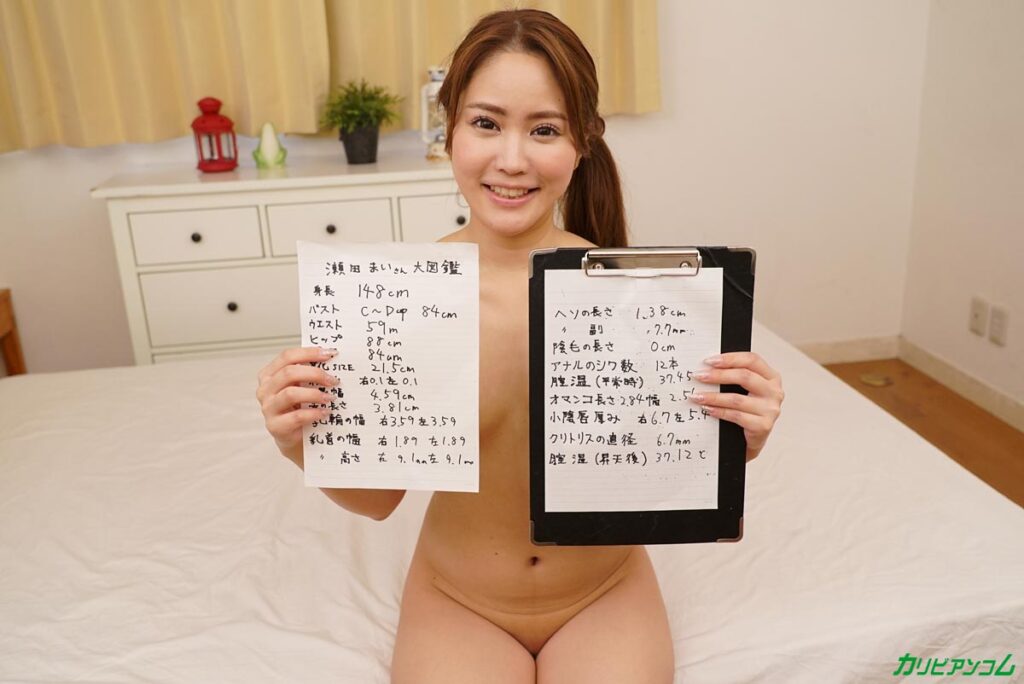 瀬田まいさん大図鑑
身長 148cm
バスト C〜Dup 84cm
ウエスト 59m
ヒップ 88cm
84cm
SIZE 21.5cm
右0.1左0.1
幅 4.59cm
の長さ 3.81cm
乳輪の幅 右3.59左3.59
乳首の幅 右1.89 左1.89
〃 高さ 右 9.1mm左 9.1m
ヘソの長さ 1.38cm
〃 副 7.7mm
陰毛の長さ 0cm
アナルのシワ数 12本
膣温(平常時) 37.45
オマンコ長さ2.84幅 2.5
小陰唇厚み 右6.7左5.4
クリトリスの直径 6.7mm
膣温(昇天後) 37.12℃
カリビアンコム